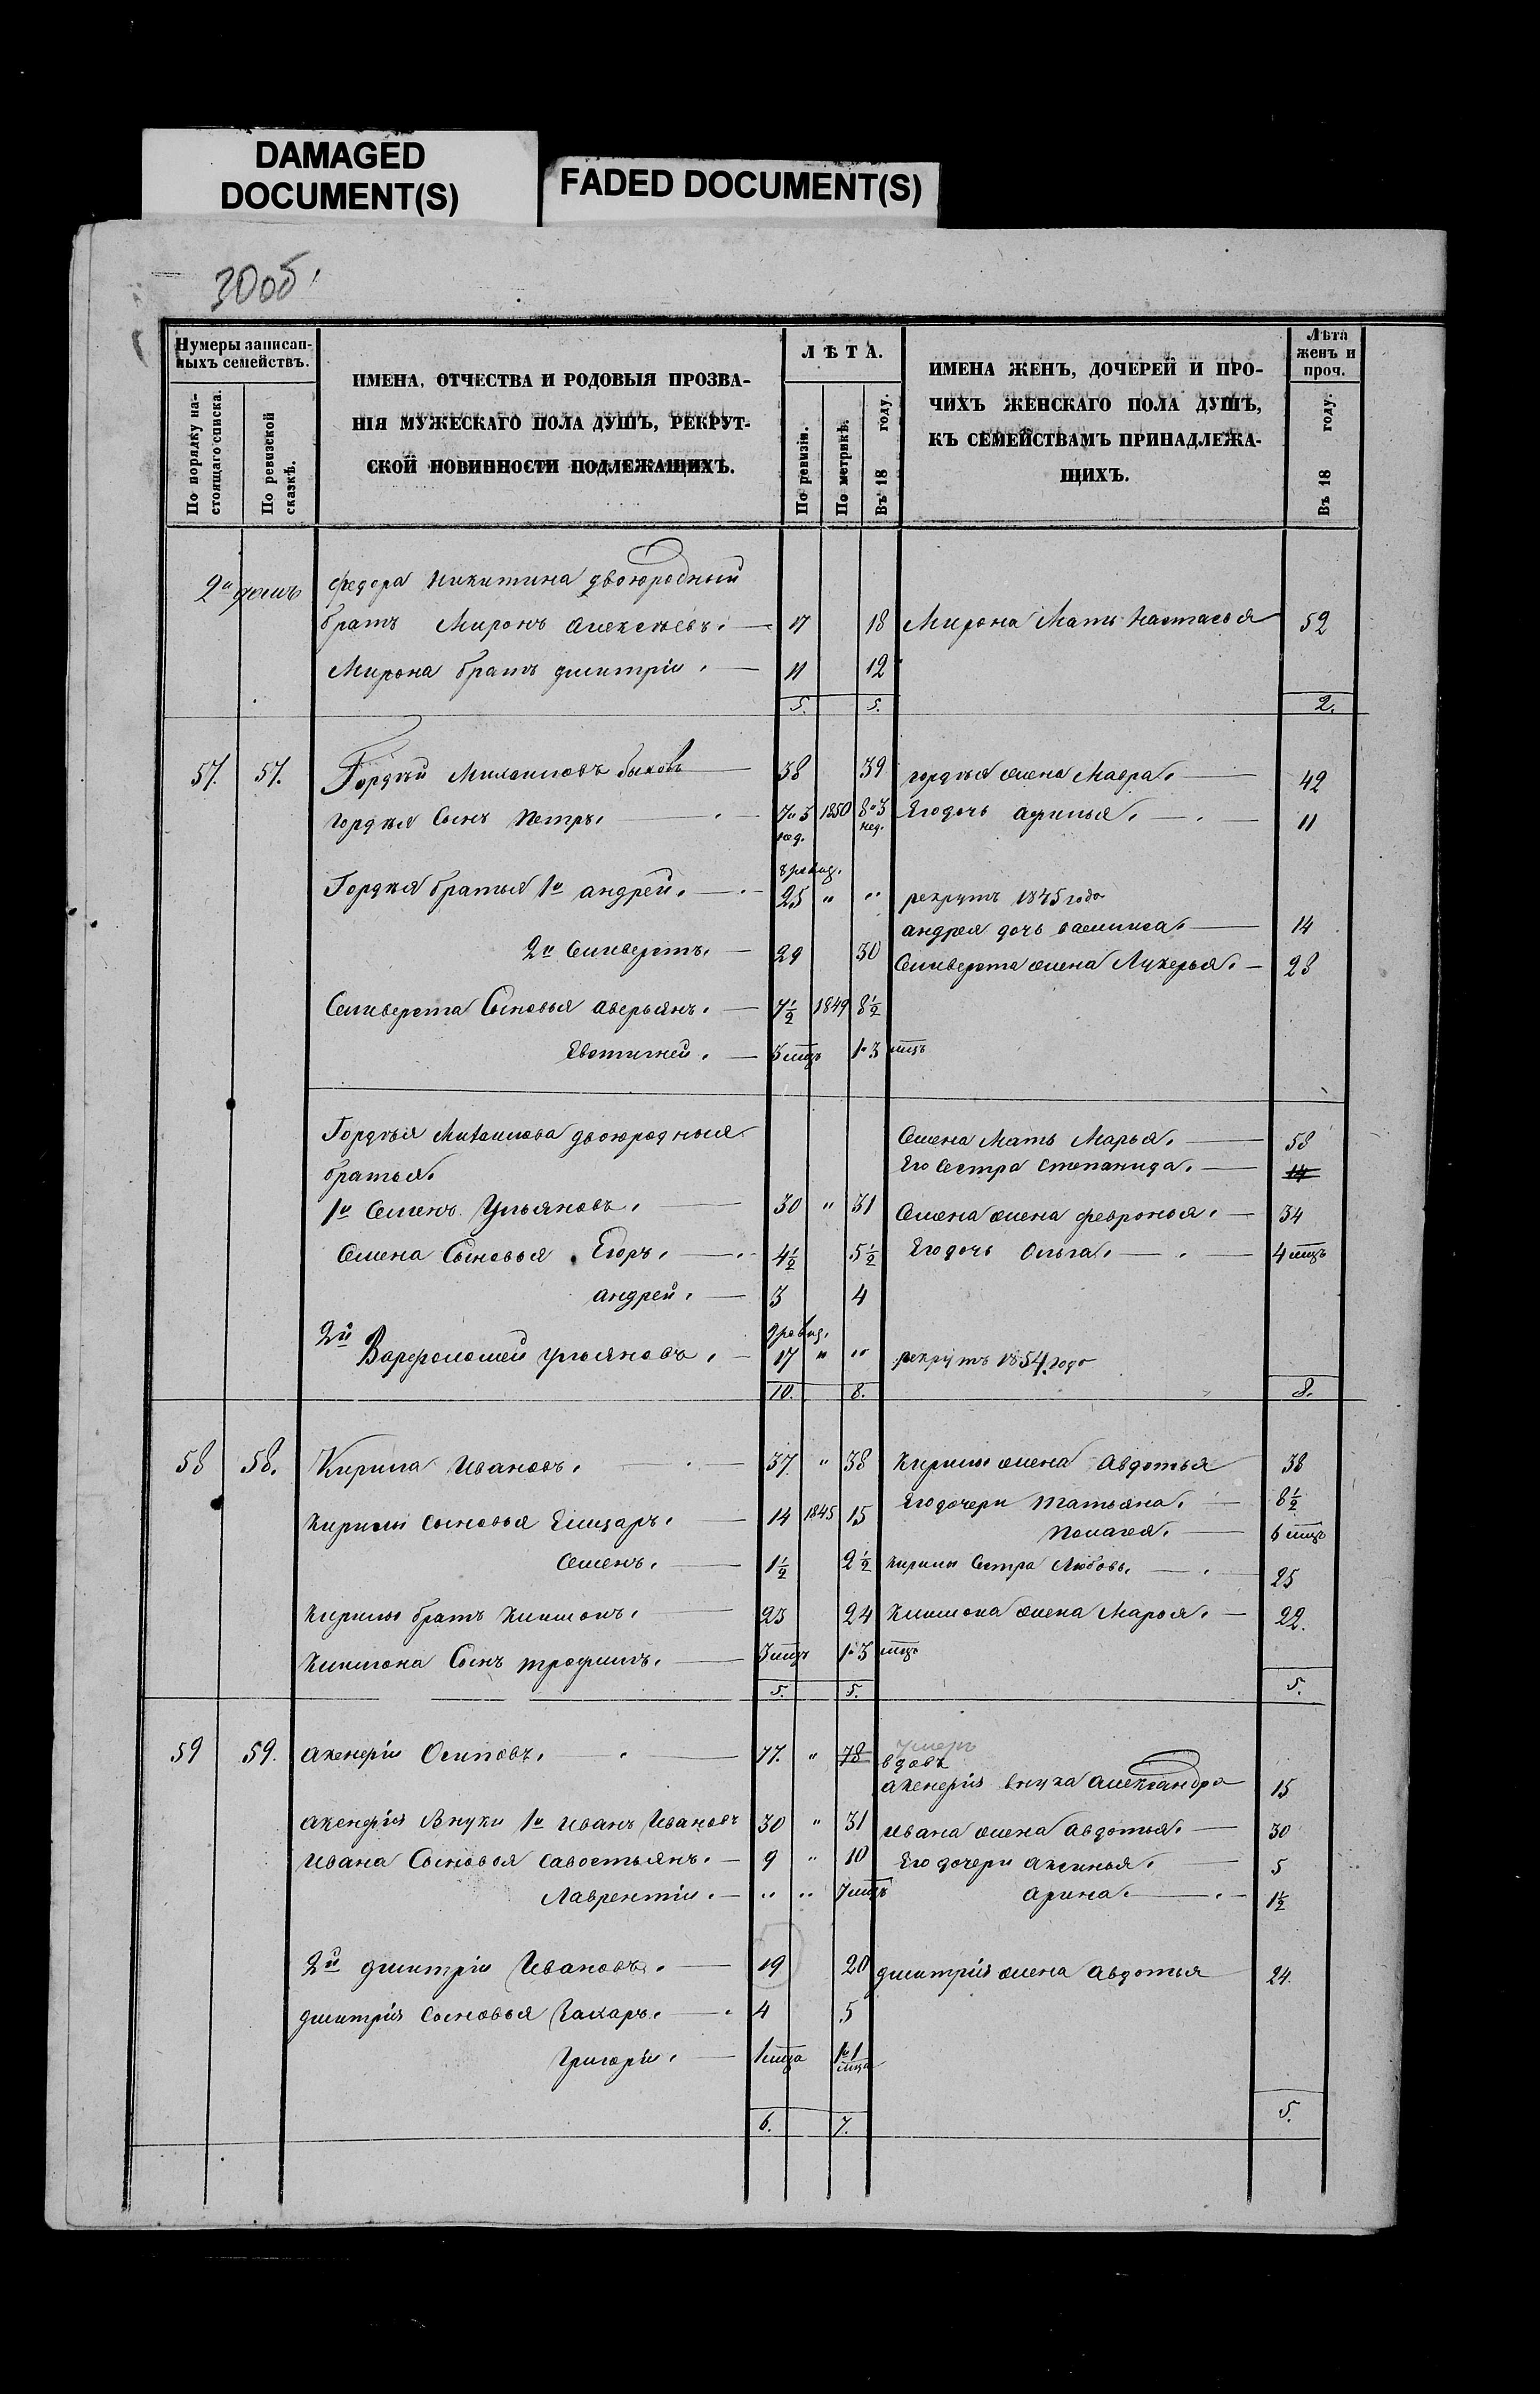 DAMAGED
DOCUMENT(S)
FADED DOCUMENT(S)
30об.
Нумеры записан-
ныхъ семействъ.
По порядку на-
стоящаго списка.
По ревизской
сказкѣ.
ИМЕНА, ОТЧЕСТВА И РОДОВЫЯ ПРОЗВА-
НІЯ МУЖЕСКАГО ПОЛА ДУШЪ, РЕКРУТ-
СКОЙ ПОВИННОСТИ ПОДЛЕЖАЩИХЪ.
ЛѢТА.
По ревизіи.
По метрикѣ.
Въ 18 году.
ИМЕНА ЖЕНЪ, ДОЧЕРЕЙ И ПРО-
ЧИХЪ ЖЕНСКАГО ПОЛА ДУШЪ,
КЪ СЕМЕЙСТВАМЪ ПРИНАДЛЕЖА-
ЩИХЪ.
Лѣта
женъ и
проч.
Въ 18 году.
Федора Никитина двоюродный
братъ Миронъ Алексѣевъ. 17 18 Мирона Мать Настасья 52
Мирона братъ дмитріи. 11 12
5. 5. 2.
57. 57. Гордѣй Михаиловъ быковъ 38 39 гордѣя жена Мавра. 42
Гордѣя Сынъ Петръ. 7 и 3 нед. 1850 8 и 3 нед. Его дочь Афимья. 11
Гордѣя братья 1й андрей. 25 " " рекрутъ 1845 года
андрея дочь 14
2й Селиверстъ. 29 30 Селиверста жена Лукерья. 28
Селиверста Сыновья аверьянъ. 7½ 1849 8½
Евтигней. 3 мцъ 1 и 3 мцъ
Гордѣя Михаилова двоюродныя
братья.
Семена Мать Марья. 58
Его Сестра Степанида. 14
1й Семенъ Ульяновъ. 30 " 31 Семена жена февронья. 34
Семена Сыновья Егоръ. 4½ 5½ Его дочь Ольга. 4 мцъ
андрей. 3 4
2й Варфоломей ульяновъ. 9 ревиз. 17 " " рекрутъ 1854 года
10. 8. 8.
58 58. Кирила Ивановъ. 37. " 38 Кирилы жена Авдотья 38
Кирилы сыновья Елизаръ. 14 1845 15 Его дочери Татьяна. 8½
Пелагея. 6 мцъ
Семенъ. 1½ 2½ Кирилы Сестра Любовь. 25
Кирилы братъ Филимонъ. 23 24 Филимона жена Марья. 22.
Филимона Сынъ трофимъ. 3 мцъ 1 и 3 мцъ
5. 5. 5.
59 59. Осиповъ. 77. " 78 умеръ
вдовъ
внука Александра 15
Внуки 1й Иванъ Ивановъ 30 " 31 Ивана жена авдотья. 30
Ивана Сыновья Савостьянъ. 9 " 10 Его дочери аксинья. 5
Лаврентіи. " " 7 мцъ арина. 1½
2й дмитріи Ивановъ. 19 20 дмитрія жена авдотья 24.
дмитрія Сыновья Захаръ. 4 5
Григоріи. 1 мца 1 и 1 мца
6. 7. 5.